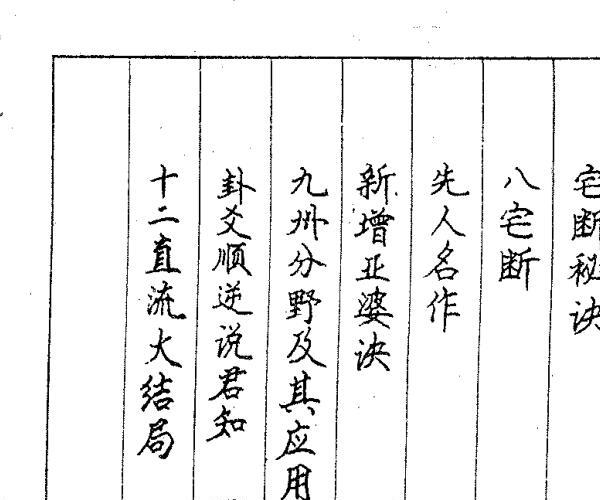 宅断秘诀
八宅断
先人名作
新增亚婆诀
九州分野及其应用
卦爻顺逆说君知
十二直流大结局